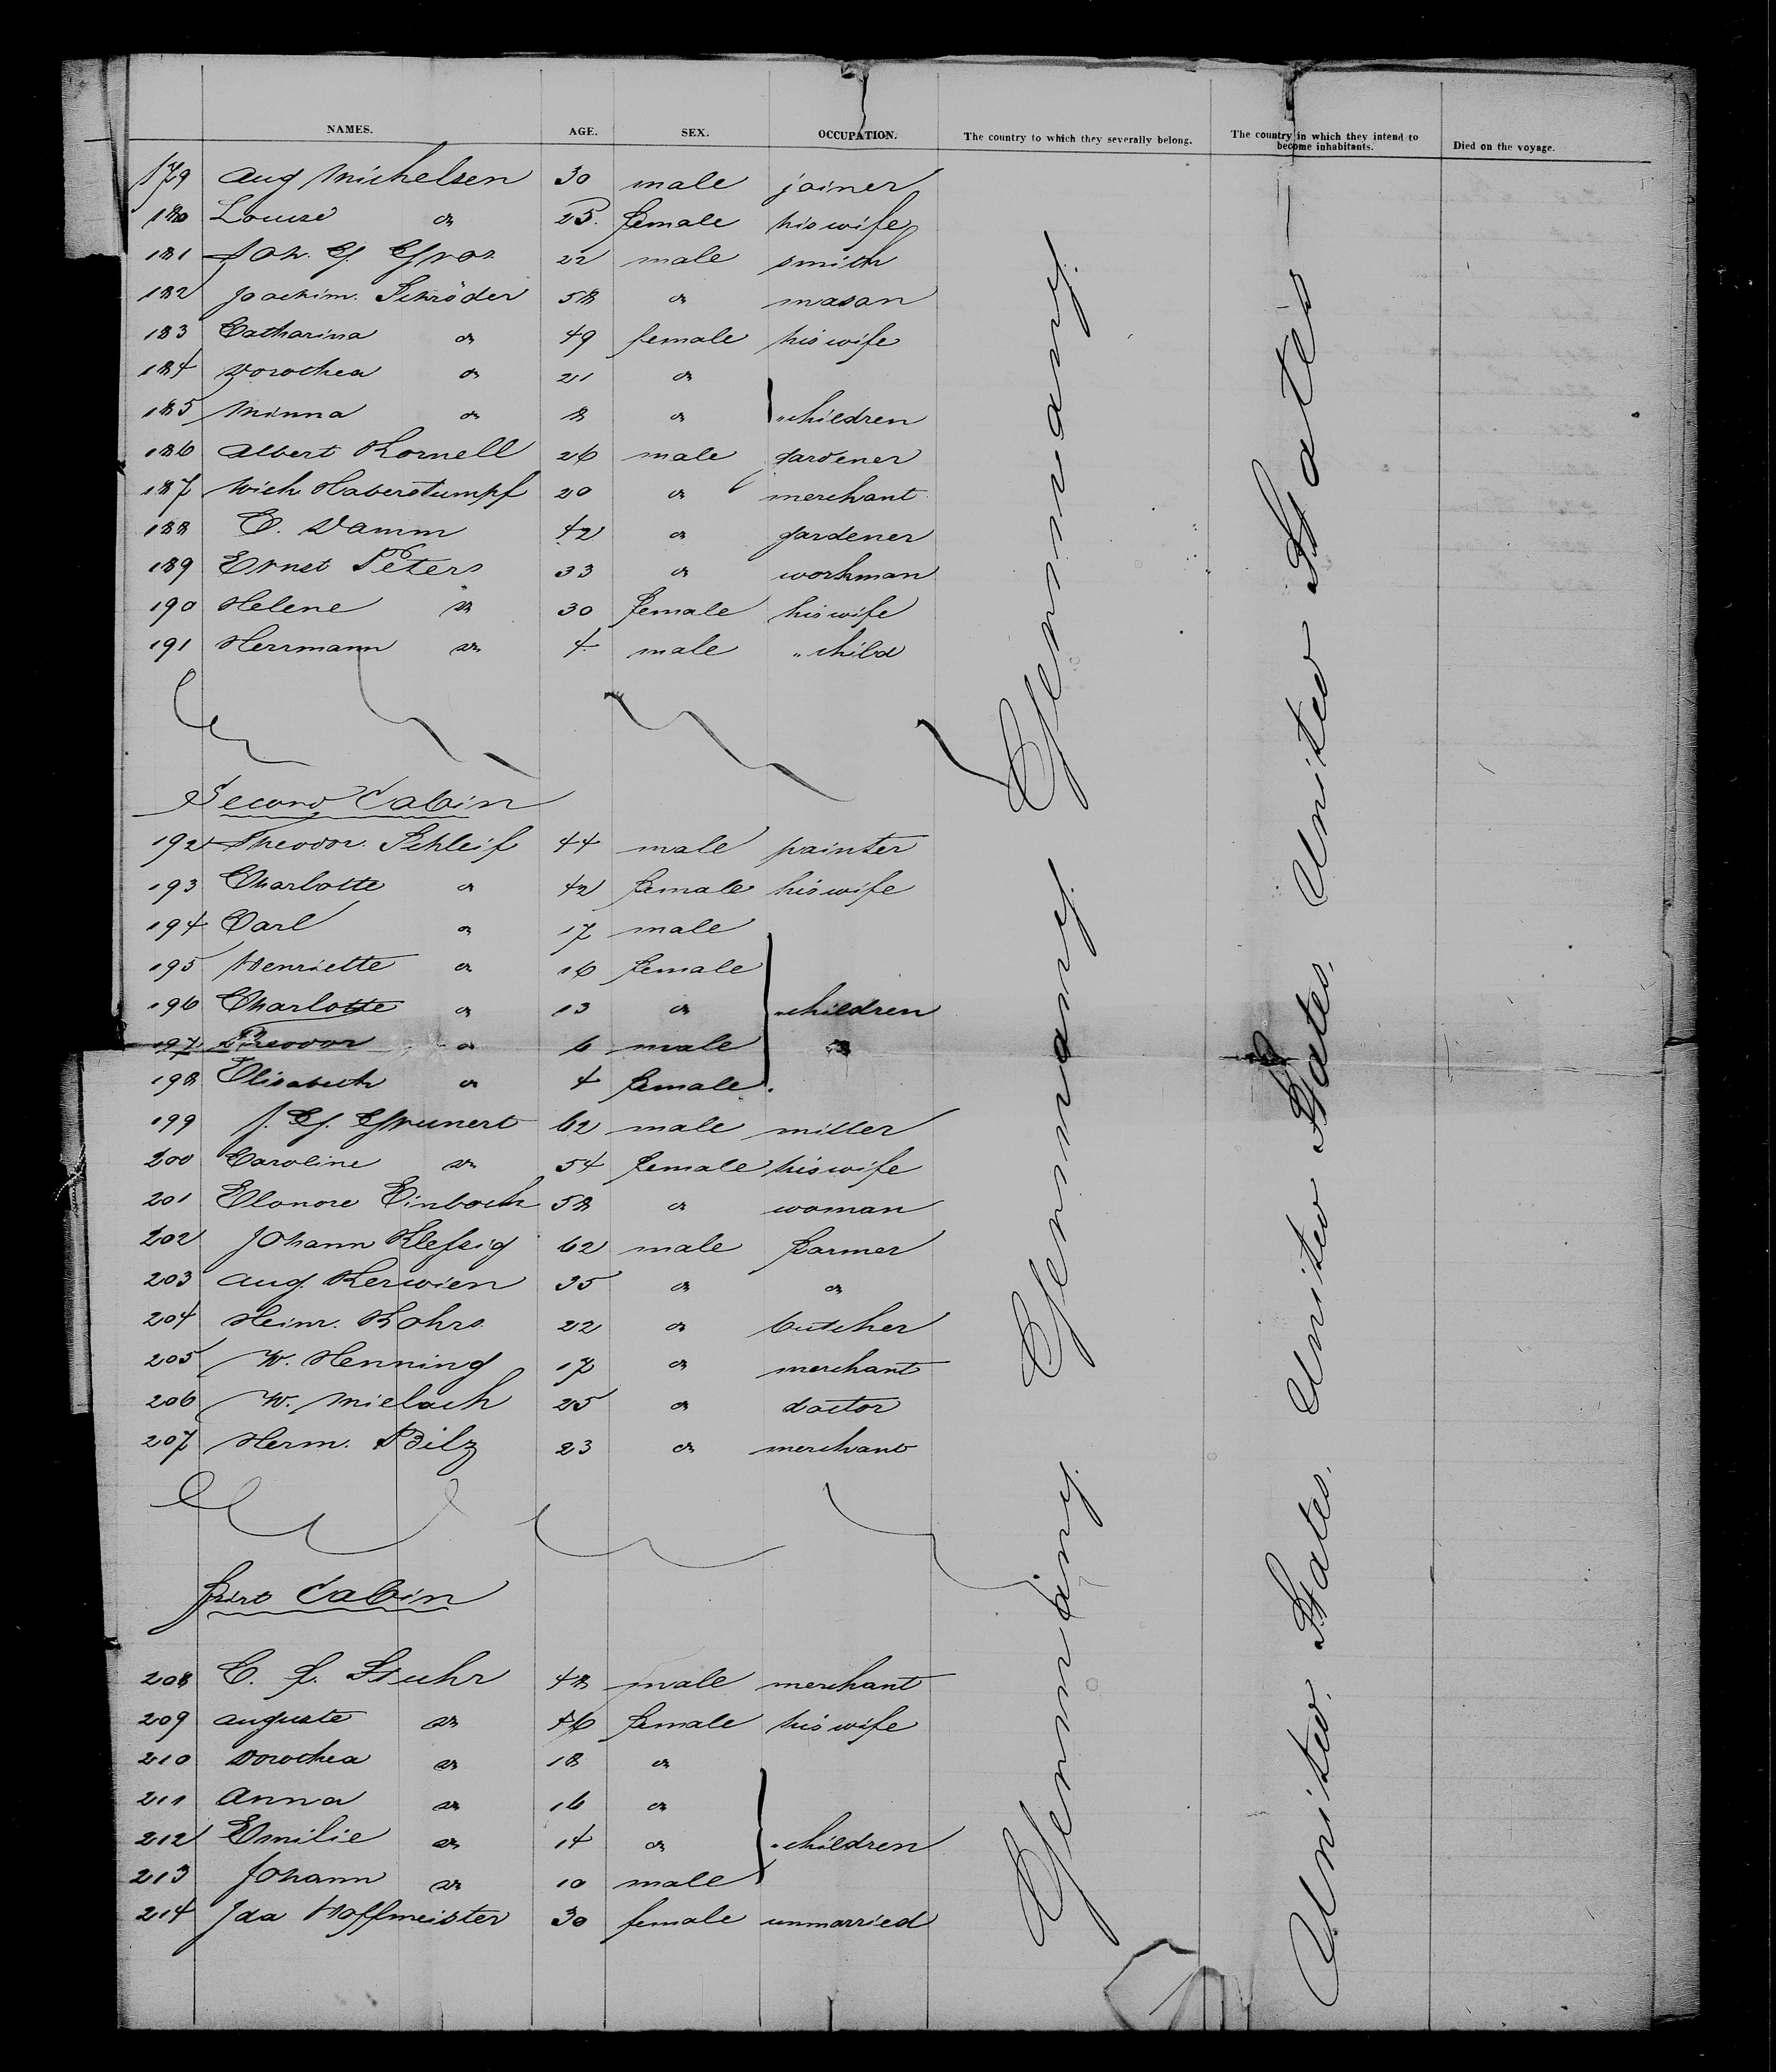 NAMES. AGE. SEX. OCCUPATION. The country to which they severally belong. The country in which they intend to become inhabitants. Died on the voyage.
179 Aug Michelsen 30 male joiner
180 Louise do 25. female his wife
181 Joh. G. Gros 22 male smith
182 Joachim. Schröder 58 do mason
183 Catharina do 49 female his wife
184 Dorothea do 21 do
185 Minna do 8 do " children
186 Albert Kornell 26 male gardener
187 Mich Haberstumpf 20 do merchant
188 C. Damm 42 do gardener
189 Ernst Peters 33 do workman
190 Helene do 30 female his wife
191 Herrmann do 4 male " child
Second Cabin
192 Theodor. Schleif 44 male painter
193 Charlotte do 42 female his wife
194 Carl do 17 male
195 Henriette do 16 female
196 Charlotte do 13 do " children
197 Theodor do 6 male
198 Elisabeth do 4 female.
199 J. G. Grunert 62 male miller
200 Caroline do 54 female his wife
201 Elonore Einboch 58 do woman
202 Johann Klefsig 62 male farmer
203 Aug. Kerwien 35 do do
204 Heinr. Kohrs 22 do butcher
205 W. Henning 17 do merchant
206 W. Mielach 25 do doctor
207 Herm. Bilz 23 do merchant
First Cabin
208 C. f. Stuhr 48 male merchant
209 Auguste do 46 female his wife
210 Dorothea do 18 do
211 Anna do 16 do
212 Emilie do 14 do " children
213 Johann do 10 male
214 Ida Hoffmeister 30 female unmarried
Germany. Germany. Germany. Germany.
United States. United States. United States